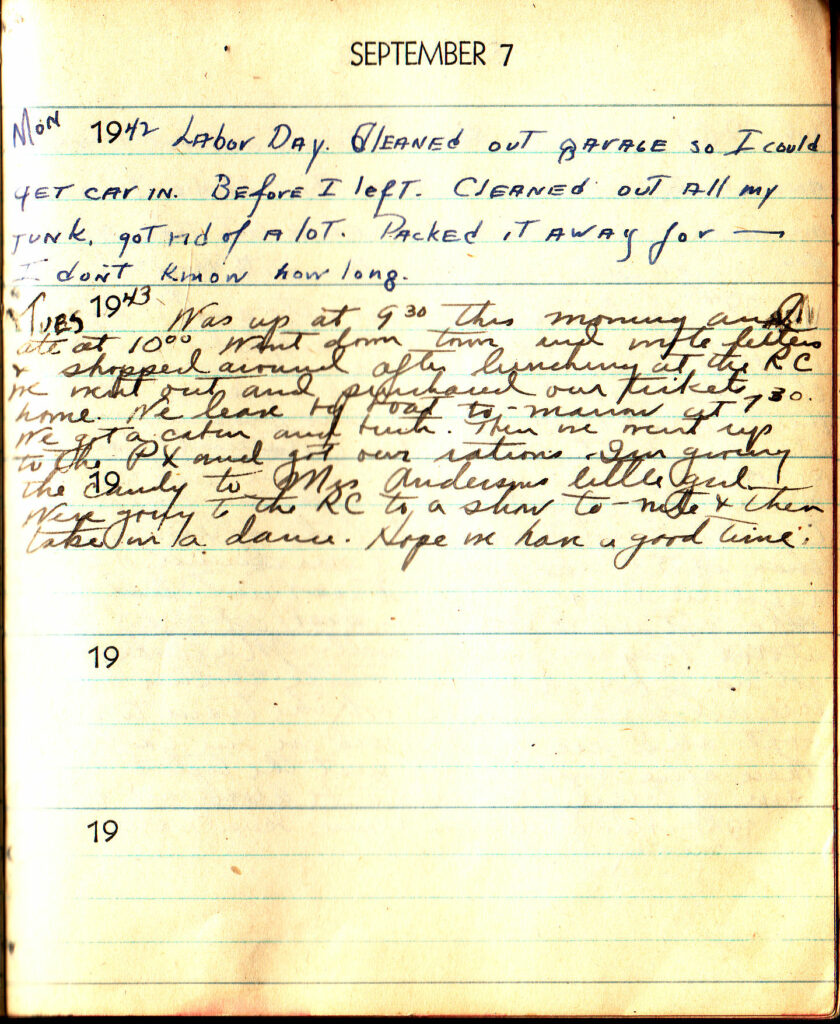 SEPTEMBER 7
Mon 1942 Labor Day. Cleaned out garage so I could
get car in. Before I left. Cleaned out all my
junk, got rid of a lot. Packed it away for —
I don't know how long.
Tues 1943 Was up at 9 30 this morning and
ate at 10 00 Went down town and wrote letters
& shopped around after lunching at the RC
we went out and purchased our tickets
home. We leave by boat to-morrow at 7 30.
We got a cabin and birth. Then we went up
to the PX and got our rations. I'm giving
19
the candy to Mrs Andersons little girl.
Were going to the RC to a show to-nite & then
take in a dance. Hope we have a good time.
19
19